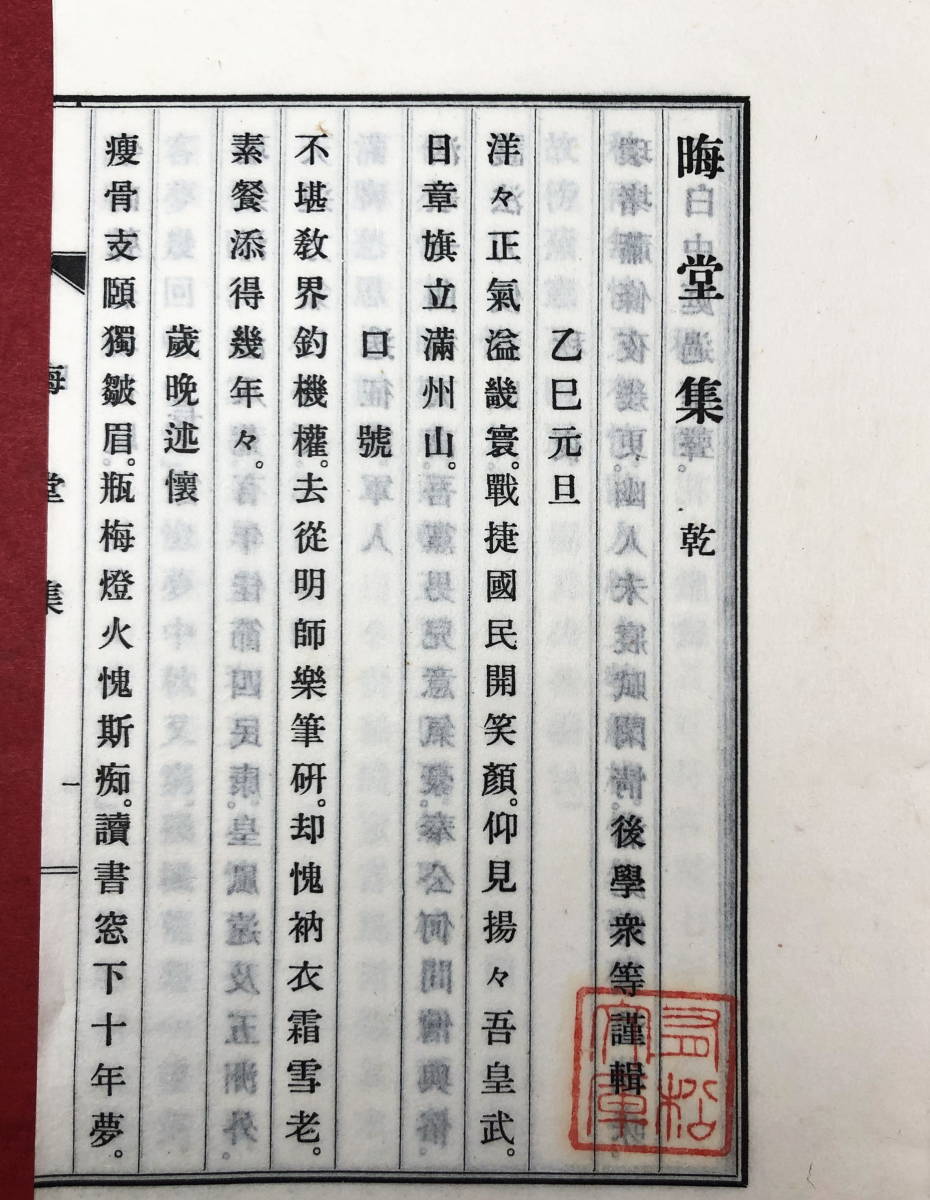 晦堂集 乾
後學衆等謹輯
乙巳元旦
洋々正氣溢畿寰。戰捷國民開笑顏。仰見揚々吾皇武。
日章旗立滿州山。
口號
不堪教界釣機權。去從明師樂筆研。却愧衲衣霜雪老。
素餐添得幾年々。
歲晚述懷
瘦骨支頤獨皺眉。瓶梅燈火愧斯痴。讀書窓下十年夢。
晦堂集
一